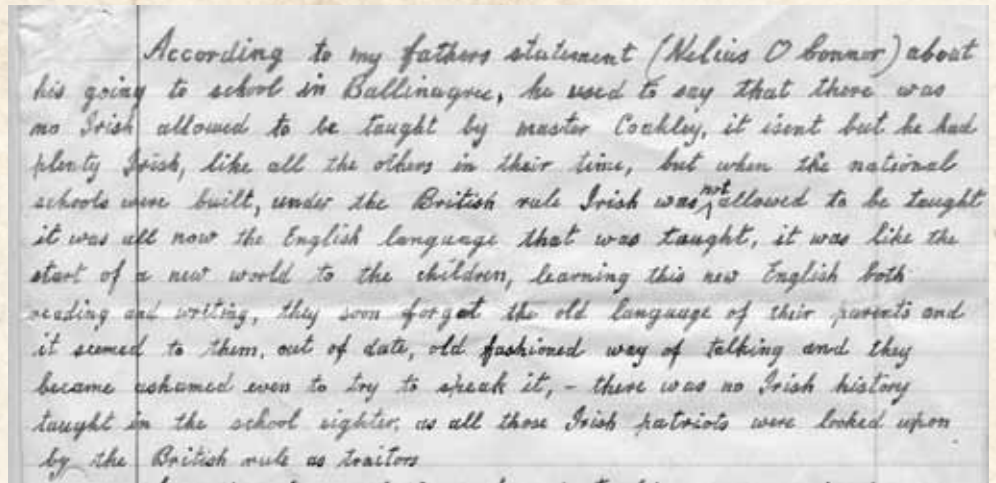 According to my fathers statement (Nelius O Connor) about
his going to school in Ballinagree, he used to say that there was
no Irish allowed to be taught by master Coakley, it isent but he had
plenty Irish, like all the others in their time, but when the national
schools were built, under the British rule Irish was not allowed to be taught
it was all now the English language that was taught, it was like the
start of a new world to the children, learning this new English both
reading and writing, they soon forgot the old language of their parents and
it seemed to them, out of date, old fashioned way of talking and they
became ashamed even to try to speak it, - there was no Irish history
taught in the school eighter, as all those Irish patriots were looked upon
by the British rule as traitors